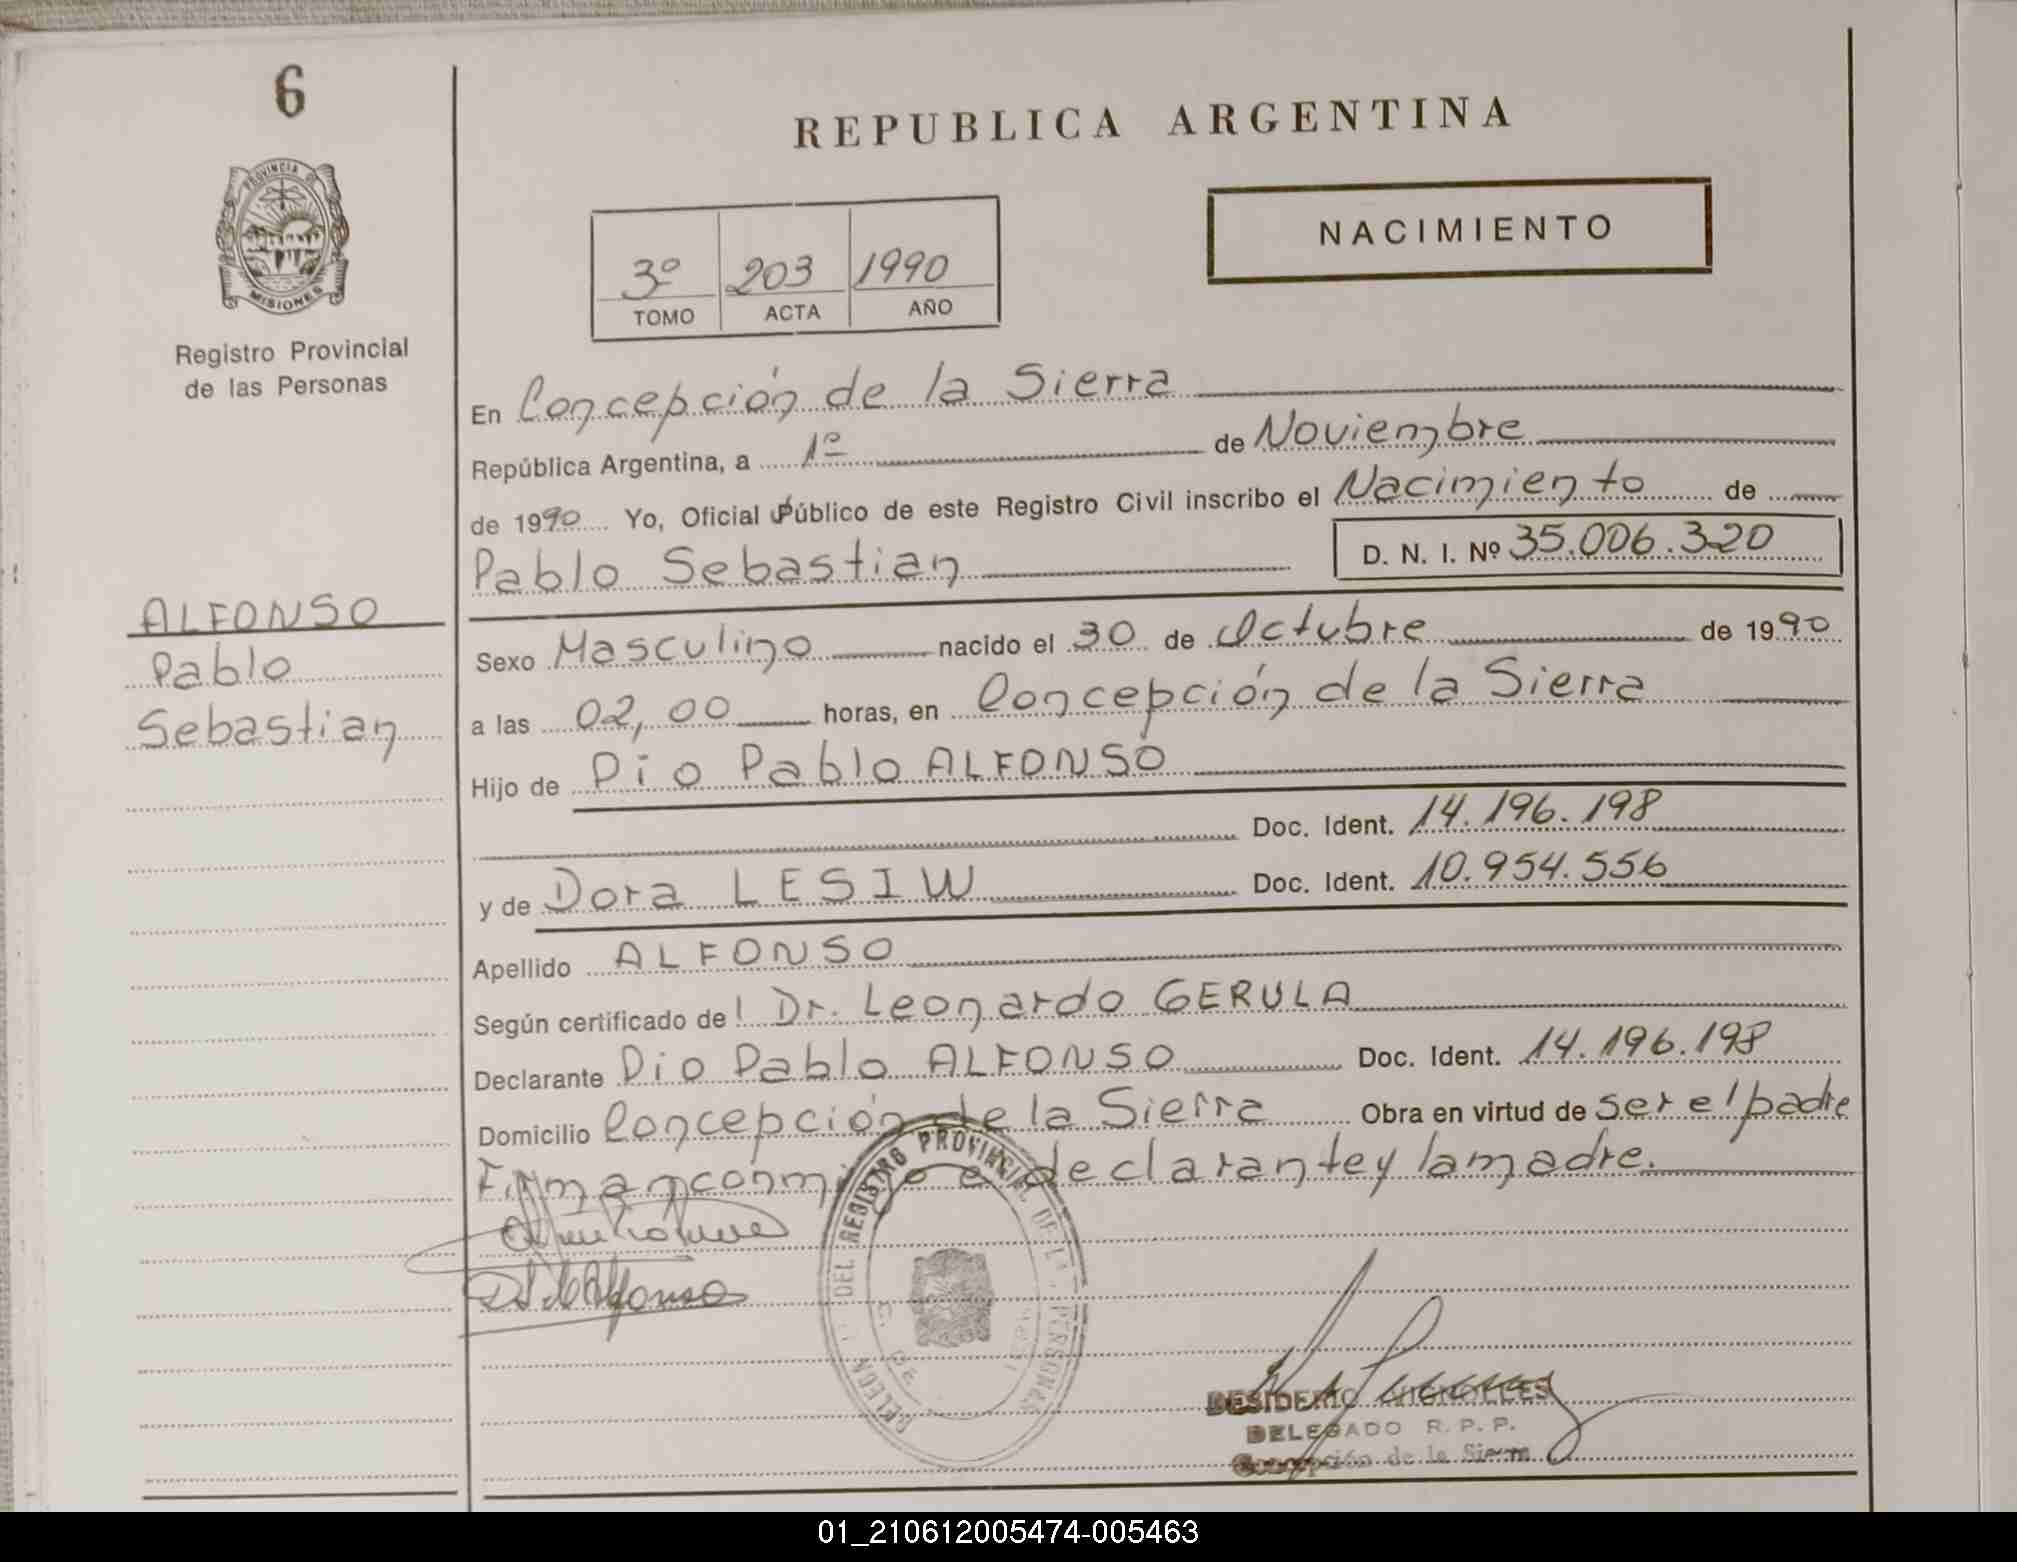 6
REPUBLICA ARGENTINA
PROVINCIA DE
MISIONES
Registro Provincial
de las Personas
NACIMIENTO
3º 203 1990
TOMO ACTA AÑO
En Concepción de la Sierra
República Argentina, a 1º de Noviembre
de 1990 Yo, Oficial Público de este Registro Civil inscribo el Nacimiento de
Pablo Sebastian D. N. I. Nº 35.006.320
ALFONSO
Pablo
Sebastian
Sexo Masculino nacido el 30 de Octubre de 1990
a las 02,00 horas, en Concepción de la Sierra
Hijo de Pio Pablo ALFONSO
Doc. Ident. 14.196.198
y de Dora LESIW Doc. Ident. 10.954.556
Apellido ALFONSO
Según certificado del Dr. Leonardo GERULA
Declarante Pio Pablo ALFONSO Doc. Ident. 14.196.198
Domicilio Concepción de la Sierra Obra en virtud de ser el padre
Firman conmigo el declarante y la madre.
DEL REGISTRO PROVINCIAL DE LAS PERSONAS
DESIDERIO VIGNOLLES
DELEGADO R. P. P.
Concepción de la Sierra
01_210612005474-005463